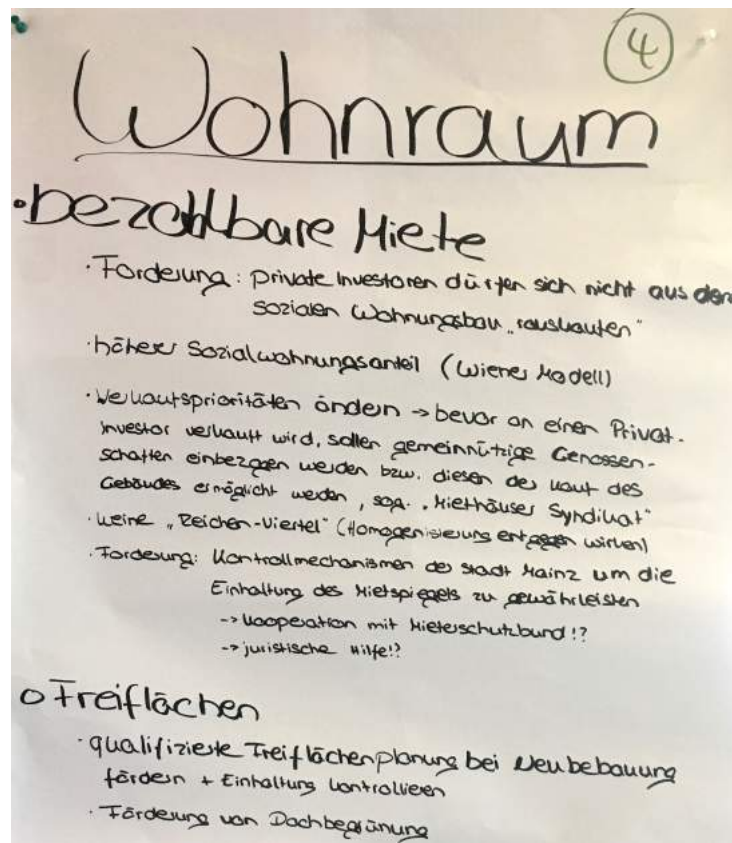 4
Wohnraum
• bezahlbare Miete
· Forderung: private Investoren dürfen sich nicht aus dem
sozialen Wohnungsbau „rauskaufen"
· höherer Sozialwohnungsanteil (Wiener Modell)
· Verkaufsprioritäten ändern -> bevor an einen Privat-
investor verkauft wird, sollen gemeinnützige Genossen-
schaften einbezogen werden bzw. diesen der Kauf des
Gebäudes ermöglicht werden, sog. „Miethäuser Syndikat"
· keine „Reichen-Viertel" (Homogenisierung entgegen wirken)
· Forderung: Kontrollmechanismen der Stadt Mainz um die
Einhaltung des Mietspiegels zu gewährleisten
-> Kooperation mit Mieterschutzbund!?
-> juristische Hilfe!?
o Freiflächen
· qualifizierte Freiflächenplanung bei Neubebauung
fördern + Einhaltung kontrollieren
· Förderung von Dachbegrünung